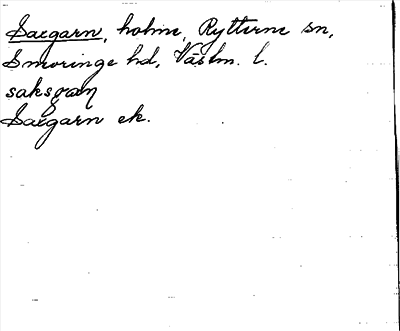 Saxgarn, holme, Rytterne sn,
Snevringe hd, Västm. l.
saksgaɳ
Saxgarn ek.